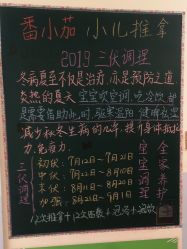 番小茄 小儿推拿
2019 三伏调理
冬病夏至不仅是治疗,亦是预防之道
炎热的夏天 宝宝吹空调,吃冷饮都
是需要借助 驱寒温阳 健脾
减少秋冬生病的几率,提升身体抵抗
力,免疫力.
三伏调理
初伏: 7月12日-7月21日
中伏: 7月22日-8月10日
末伏: 8月11日-8月20日
加强: 8月21日-9月1日
宝宝调理
全家养护
12次推拿+12次贴敷+